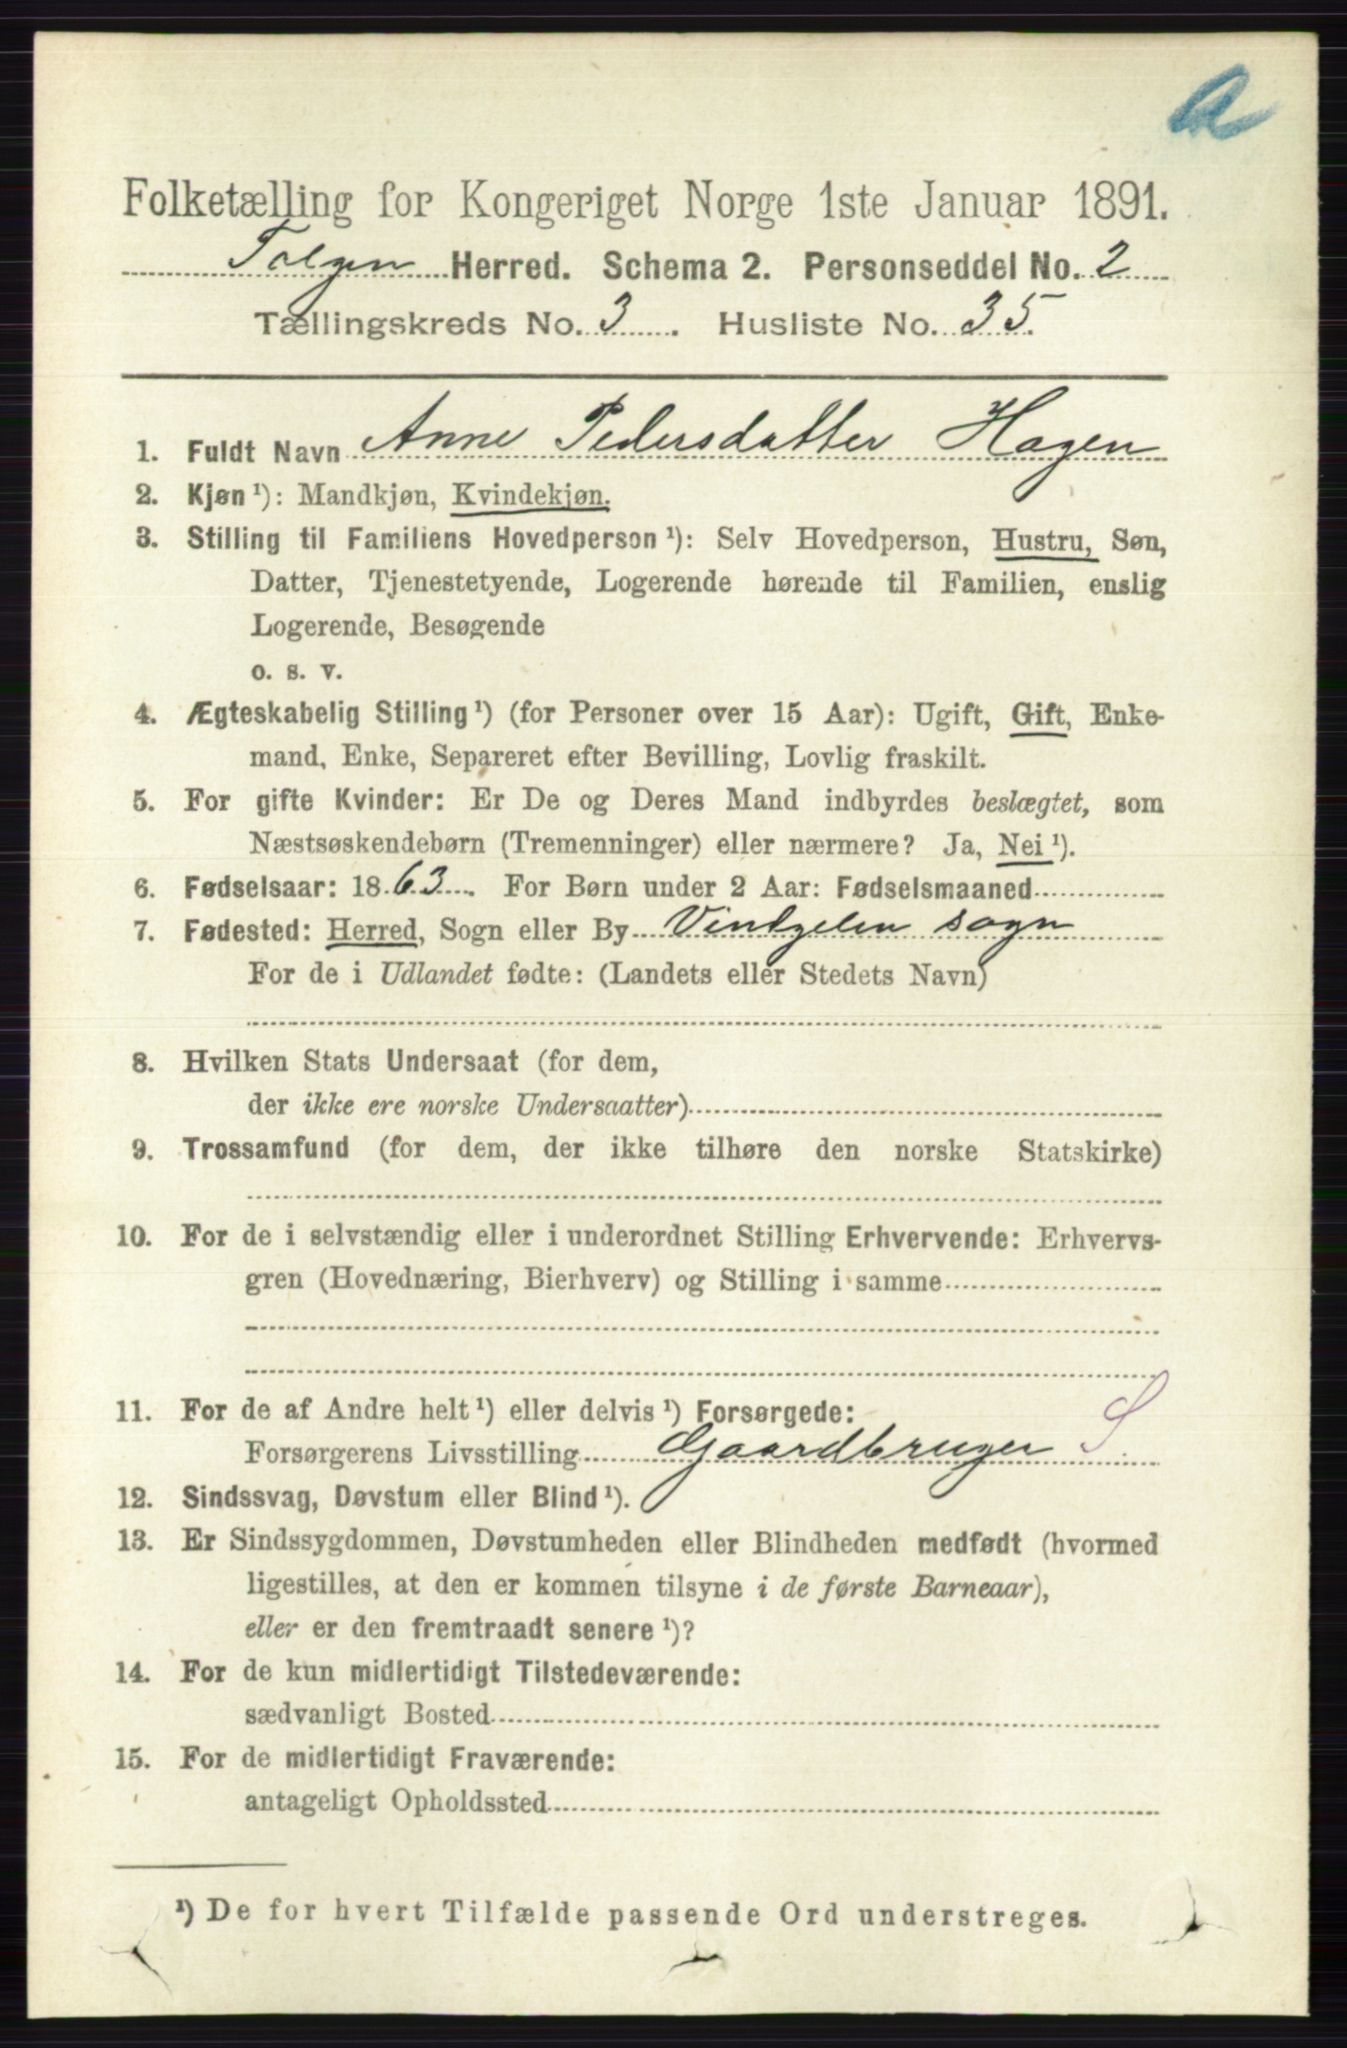 a
Folketælling for Kongeriget Norge 1ste Januar 1891.
Tolgen Herred. Schema 2. Personseddel No. 2
Tællingskreds No. 3. Husliste No. 35.
1. Fuldt Navn Anne Pedersdatter Hagen
2. Kjøn ¹): Mandkjøn, Kvindekjøn.
3. Stilling til Familiens Hovedperson ¹): Selv Hovedperson, Hustru, Søn,
Datter, Tjenestetyende, Logerende hørende til Familien, enslig
Logerende, Besøgende
o. s. v.
4. Ægteskabelig Stilling ¹) (for Personer over 15 Aar): Ugift, Gift, Enke-
mand, Enke, Separeret efter Bevilling, Lovlig fraskilt.
5. For gifte Kvinder: Er De og Deres Mand indbyrdes beslægtet, som
Næstsøskendebørn (Tremenninger) eller nærmere? Ja, Nei ¹).
6. Fødselsaar: 1863. For Børn under 2 Aar: Fødselsmaaned
7. Fødested: Herred, Sogn eller By Vintgelen sogn
For de i Udlandet fødte: (Landets eller Stedets Navn)
8. Hvilken Stats Undersaat (for dem,
der ikke ere norske Undersaatter)
9. Trossamfund (for dem, der ikke tilhøre den norske Statskirke)
10. For de i selvstændig eller i underordnet Stilling Erhvervende: Erhvervs-
gren (Hovednæring, Bierhverv) og Stilling i samme
11. For de af Andre helt ¹) eller delvis ¹) Forsørgede:
Forsørgerens Livsstilling Gaardbruger S.
12. Sindssvag, Døvstum eller Blind ¹).
13. Er Sindssygdommen, Døvstumheden eller Blindheden medfødt (hvormed
ligestilles, at den er kommen tilsyne i de første Barneaar),
eller er den fremtraadt senere ¹)?
14. For de kun midlertidigt Tilstedeværende:
sædvanligt Bosted
15. For de midlertidigt Fraværende:
antageligt Opholdssted
¹) De for hvert Tilfælde passende Ord understreges.